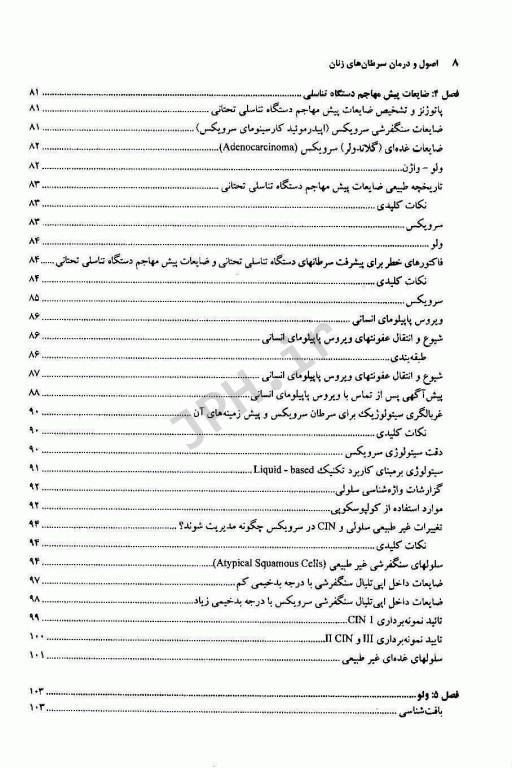 ۸ اصول و درمان سرطان‌های زنان
فصل ۴: ضایعات پیش مهاجم دستگاه تناسلی ........ ۸۱
پاتوژنز و تشخیص ضایعات پیش مهاجم دستگاه تناسلی تحتانی ........ ۸۱
ضایعات سنگفرشی سرویکس (اپیدرموئید کارسینومای سرویکس) ........ ۸۱
ضایعات غده‌ای (گلاندولر) سرویکس (Adenocarcinoma) ........ ۸۲
ولو - واژن ........ ۸۲
تاریخچه طبیعی ضایعات پیش مهاجم دستگاه تناسلی تحتانی ........ ۸۳
نکات کلیدی ........ ۸۳
سرویکس ........ ۸۳
ولو ........ ۸۴
فاکتورهای خطر برای پیشرفت سرطانهای دستگاه تناسلی تحتانی و ضایعات پیش مهاجم دستگاه تناسلی تحتانی ........ ۸۴
نکات کلیدی ........ ۸۴
سرویکس ........ ۸۵
ویروس پاپیلومای انسانی ........ ۸۶
شیوع و انتقال عفونتهای ویروس پاپیلومای انسانی ........ ۸۶
طبقه‌بندی ........ ۸۶
شیوع و انتقال عفونتهای ویروس پاپیلومای انسانی ........ ۸۷
پیش‌آگهی پس از تماس با ویروس پاپیلومای انسانی ........ ۸۸
غربالگری سیتولوژیک برای سرطان سرویکس و پیش زمینه‌های آن ........ ۹۰
نکات کلیدی ........ ۹۰
دقت سیتولوژی سرویکس ........ ۹۰
سیتولوژی برمبنای کاربرد تکنیک Liquid - based ........ ۹۱
گزارشات واژه‌شناسی سلولی ........ ۹۲
موارد استفاده از کولپوسکوپی ........ ۹۲
تغییرات غیر طبیعی سلولی و CIN در سرویکس چگونه مدیریت شوند؟ ........ ۹۴
نکات کلیدی ........ ۹۴
سلولهای سنگفرشی غیر طبیعی (Atypical Squamous Cells) ........ ۹۴
ضایعات داخل اپی‌تلیال سنگفرشی با درجه بدخیمی کم ........ ۹۷
ضایعات داخل اپی‌تلیال سنگفرشی سرویکس با درجه بدخیمی زیاد ........ ۹۸
تائید نمونه‌برداری CIN I ........ ۹۹
تایید نمونه‌برداری III و II CIN ........ ۱۰۰
سلولهای غده‌ای غیر طبیعی ........ ۱۰۱
فصل ۵: ولو ........ ۱۰۳
بافت‌شناسی ........ ۱۰۳
JPH.ir